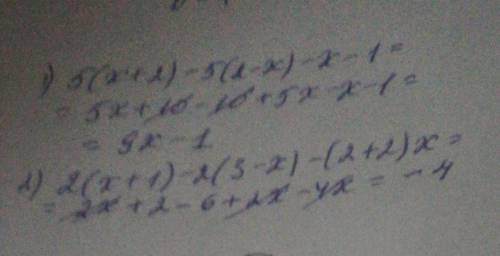 1) 5(x+2)-5(2-x)-x-1=
=5x+10-10+5x-x-1=
=9x-1
2) 2(x+1)-2(3-x)-(2+2)x=
=2x+2-6+2x-4x=-4